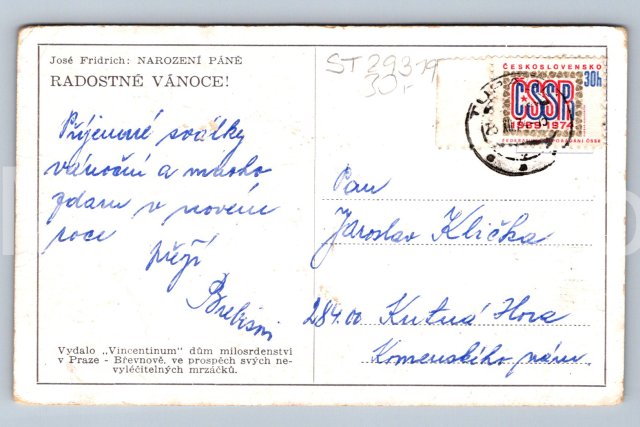 José Fridrich: NAROZENÍ PÁNĚ
RADOSTNÉ VÁNOCE!
Příjemné svátky
vánoční a mnoho
zdaru v novém
roce
přejí
ST 293 19
30,-
ČESKOSLOVENSKO
30h
ČSSR
1969-1974
Pan
Jaroslav Klička
284 00 Kutná Hora
Komenského nám.
Vydalo „Vincentinum" dům milosrdenství
v Praze - Břevnově, ve prospěch svých ne-
vyléčitelných mrzáčků.